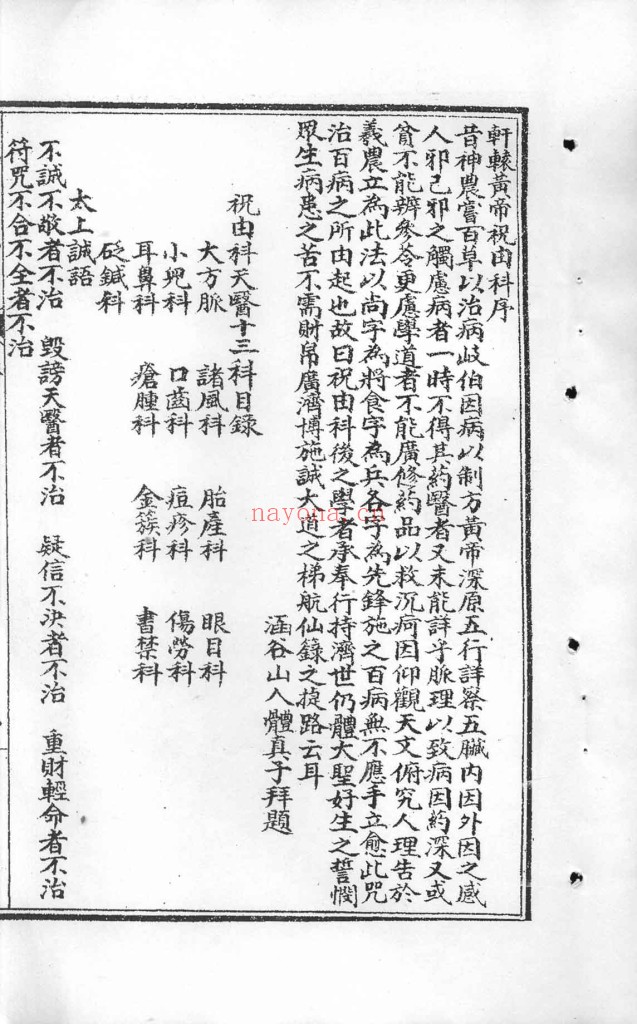 軒轅黃帝祝由科序
昔神農嘗百草以治病岐伯因病以制方黃帝深原五行詳察五臟內因外因之感
人邪己邪之觸慮病者一時不得其葯醫者又未能詳乎脈理以致病因葯深又或
貧不能辨參苓更慮學道者不能廣修葯品以救沉疴因仰觀天文俯究人理告於
義農立為此法以尚字為將食字為兵各字為先鋒施之百病無不應手立愈此咒
治百病之所由起也故曰祝由科後之學者承奉行持濟世仍體大聖好生之誓憫
眾生病患之苦不需財帛廣濟博施誠大道之梯航仙錄之捷路云耳
涵谷山人體真子拜題
祝由科天醫十三科目錄
大方脈 諸風科 胎產科 眼目科
小兒科 口齒科 痘疹科 傷勞科
耳鼻科 瘡腫科 金簇科 書禁科
砭鍼科
太上誠語
不誠不敬者不治 毀謗天醫者不治 疑信不決者不治 重財輕命者不治
符咒不合不全者不治
nayona.cn